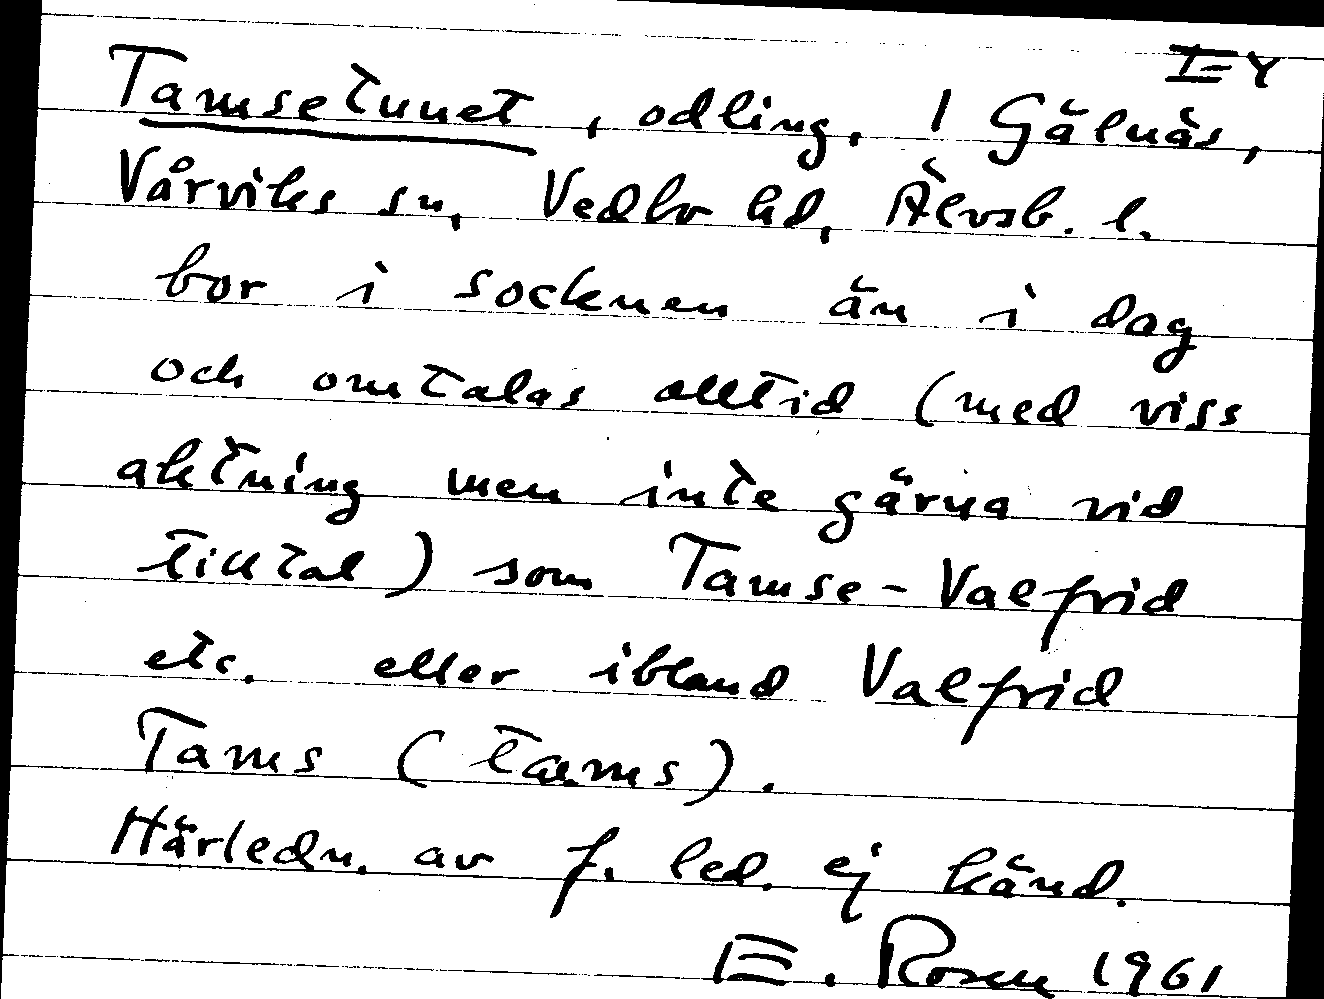 Tamsetunet, odling. I Gälnäs,
Vårviks sn, Vedbo hd, Älvsb. l.
bor i socknen än i dag
och omtalas alltid (med viss
aktning men inte gärna vid
tilltal) som Tamse-Valfrid
etc. eller ibland Valfrid
Tams (tams).
Härledn. av f. led. ej känd.
E. Rosen 1961